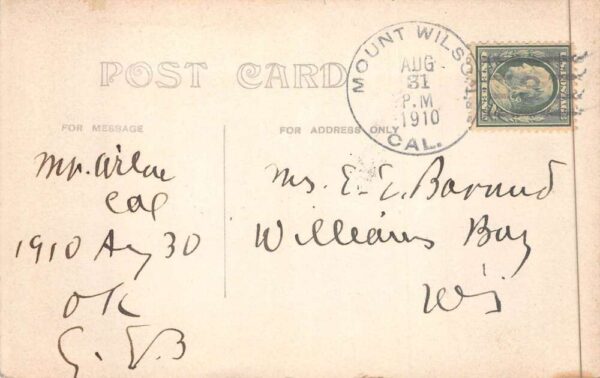 POST CARD
FOR MESSAGE
FOR ADDRESS ONLY
MOUNT WILSON
AUG
31
P.M
1910
CAL.
Mt. Wilson
Cal
1910 Aug 30
OK
E. E. B
Mrs. E. E. Barnard
Williams Bay
Wis